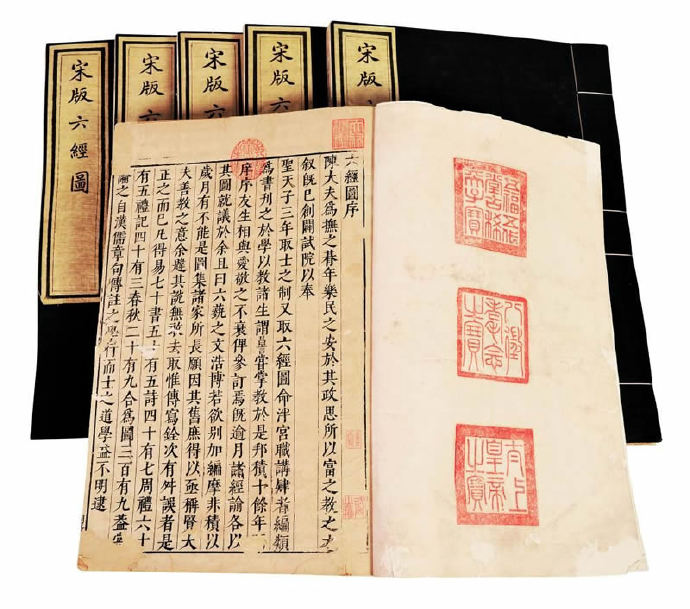 宋版六經圖
宋版六
宋版六
宋版六
宋版
六經圖序
陳大夫為撫之朞年樂民之安於其政思所以富之教之
叙旣已創闢試院以奉
聖天子三年取士之制又取六經圖命泮宮職講肄者編類
為書刊之於學以教諸生謂嘗掌教於是邦積十餘年
庠序友生相與愛敬之不衰俾參訂焉旣逾月諸經論各以
其圖就議於余且曰六藝之文浩博若欲別加編摩非積以
歲月有不能是罔集諸家所長願因其舊應得以亟稱賢大
夫善教之意余其說無去取惟傳寫銓次有舛誤者是
正之而已凡得易七十書五十有五詩四十有七周禮六十
有五禮記四十有三春秋二十有九合為圖三百有九蓋嘗
論之自漢儒章句傳註之學行而士之道學益不明逮
五福五代堂古稀天子寶
八徵耄念之寶
太上皇帝之寶